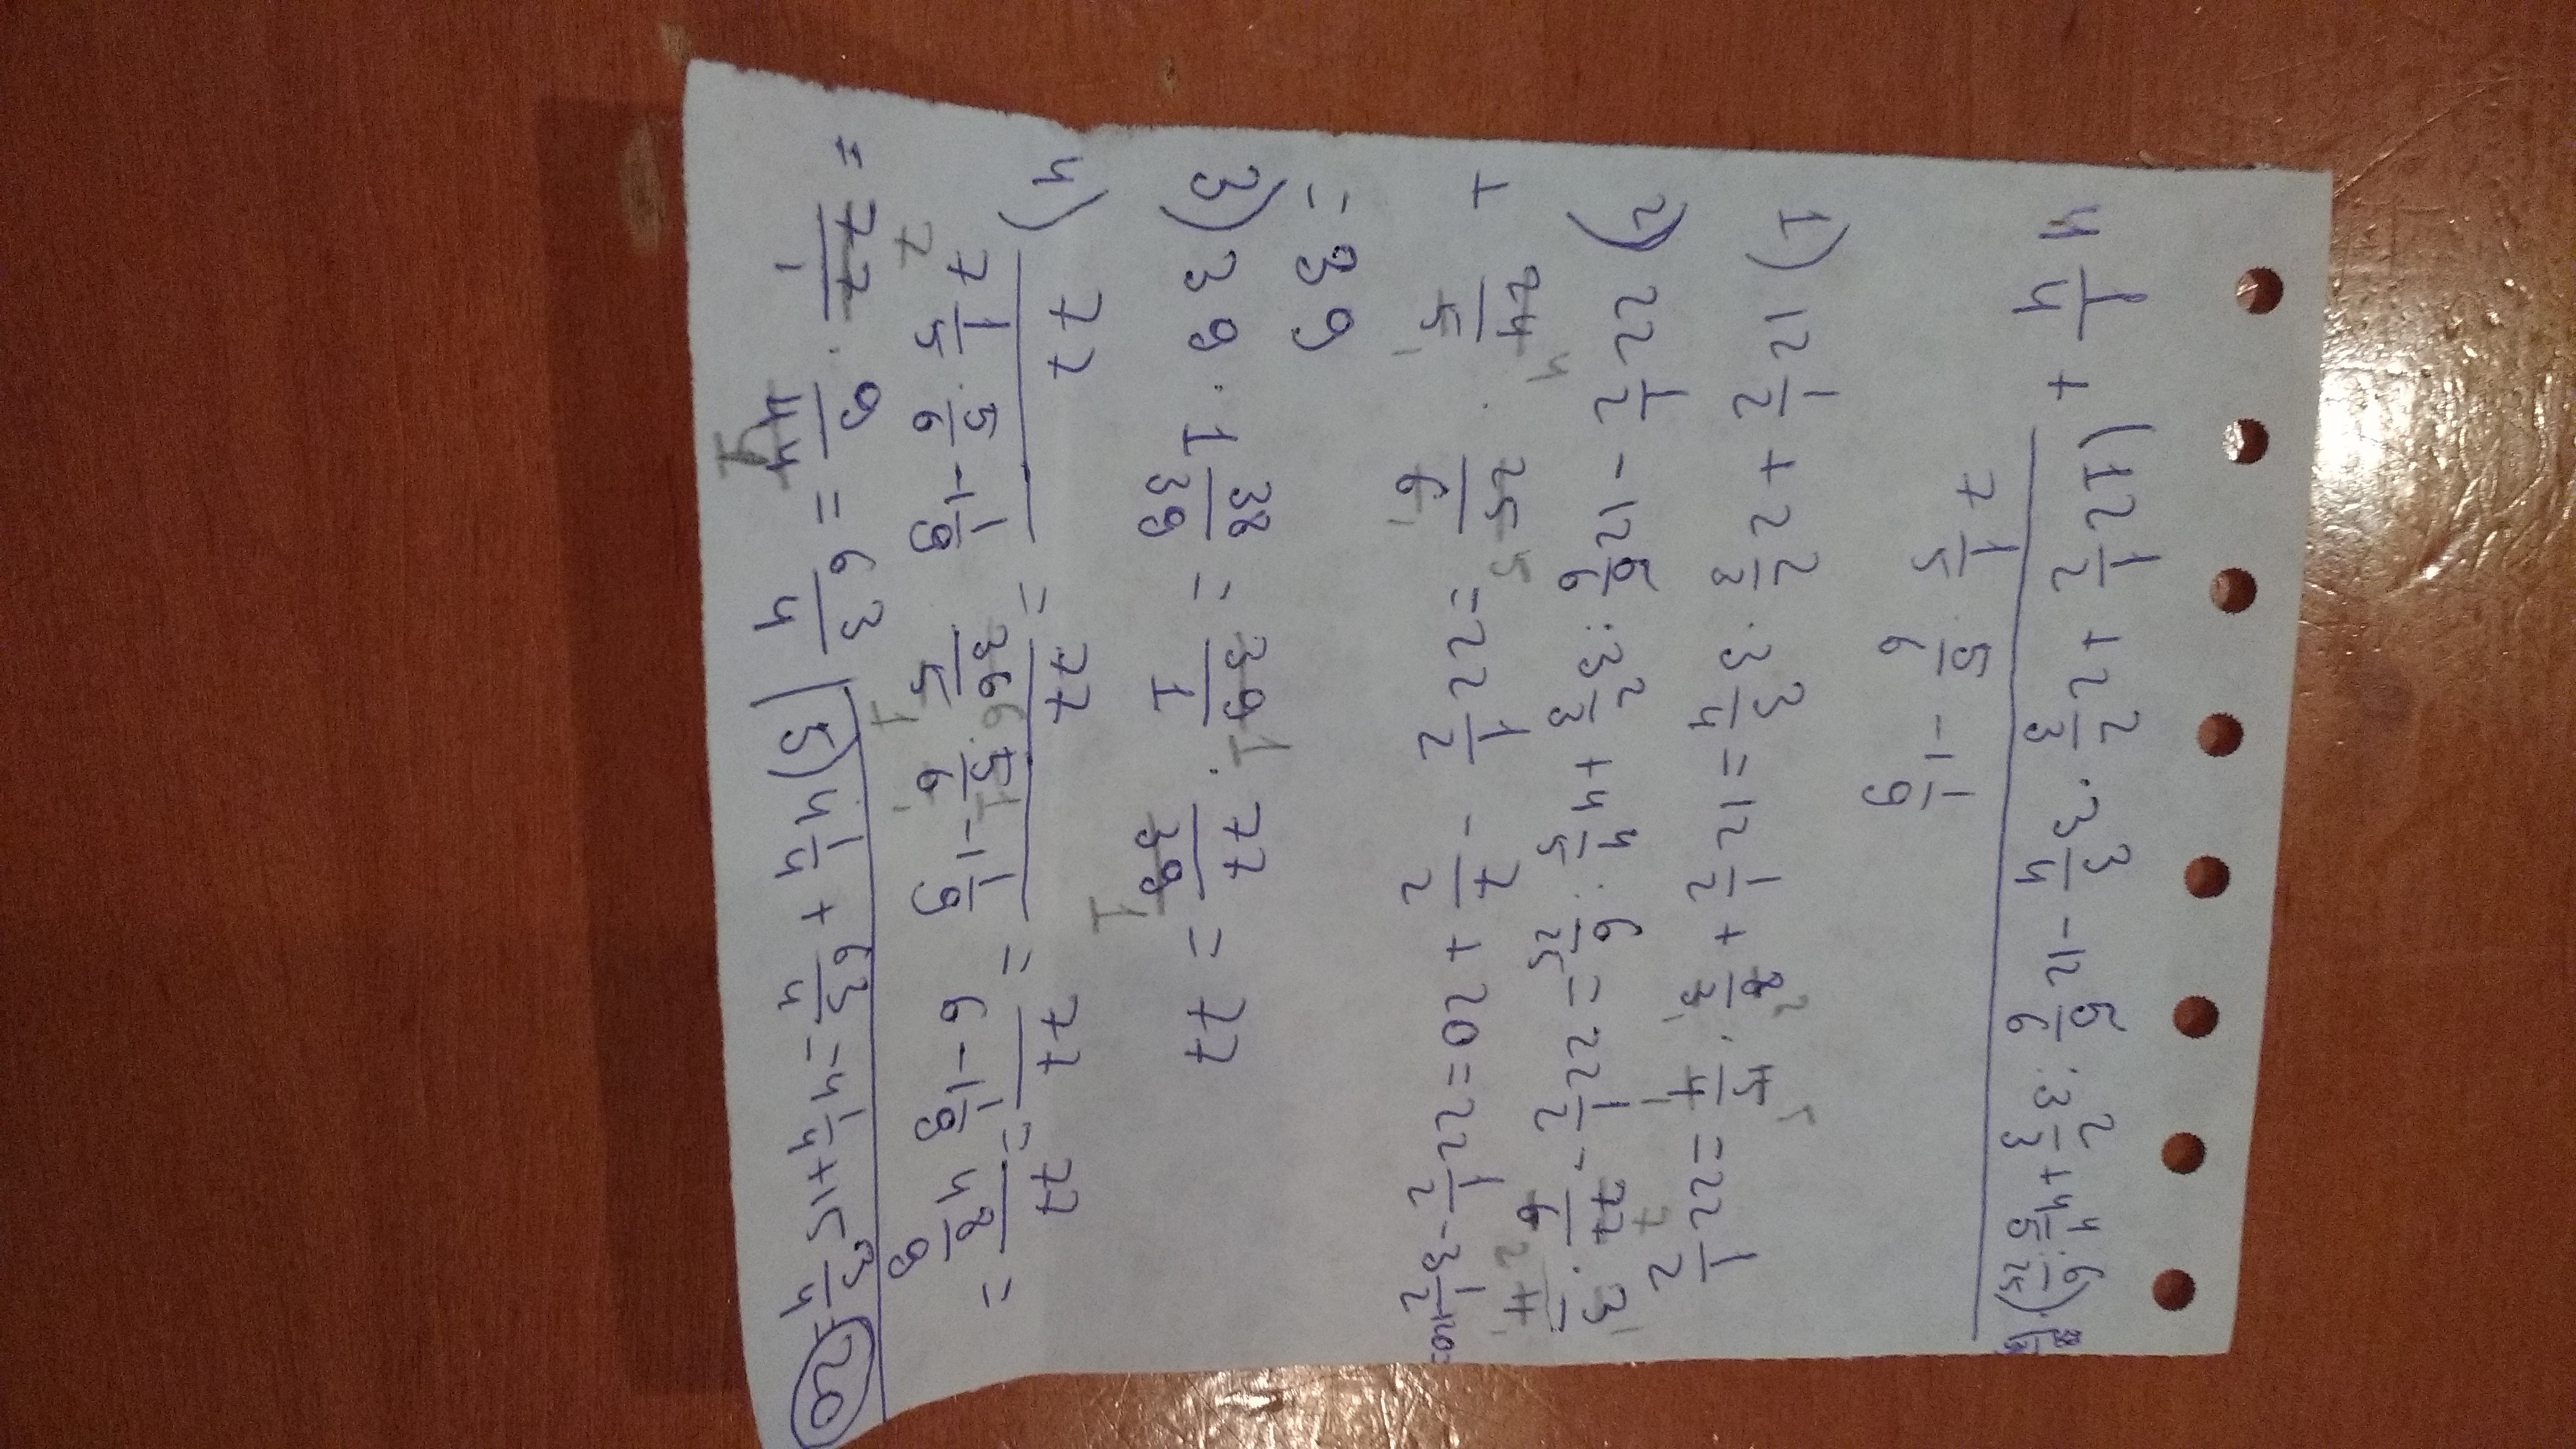 4 1/4 + (12 1/2 + 2 2/3 · 3 3/4 - 12 5/6 : 3 2/3 + 4 4/5 : 6/25) · 1 38/39
7 1/5 · 5/6 - 1 1/9
1) 12 1/2 + 2 2/3 · 3 3/4 = 12 1/2 + 8/3 · 15/4 = 22 1/2
2) 22 1/2 - 12 5/6 : 3 2/3 + 4 4/5 : 6/25 = 22 1/2 - 77/6 · 3/11
+ 24/5 · 25/6 = 22 1/2 - 7/2 + 20 = 22 1/2 - 3 1/2 + 20 =
= 39
3) 39 · 1 38/39 = 39/1 · 77/39 = 77
4) 77/(7 1/5 · 5/6 - 1 1/9) = 77/(36/5 · 5/6 - 1 1/9) = 77/(6 - 1 1/9) = 77/(4 8/9) =
= 77/1 · 9/44 = 63/4 5) 4 1/4 + 63/4 = 4 1/4 + 15 3/4 = 20